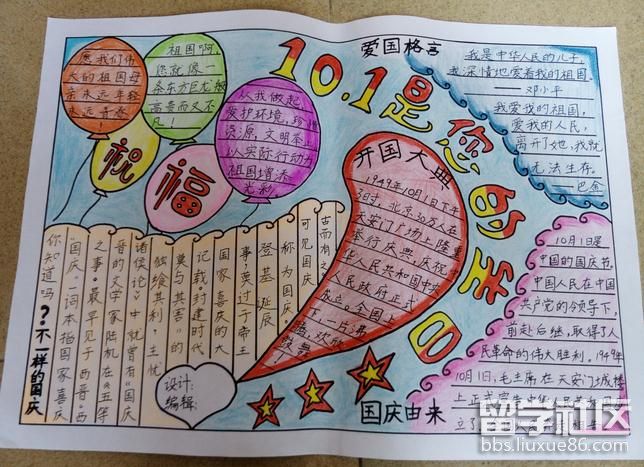 愿我们伟
大的祖国母
亲永远年轻
永远青春!
祖国啊,
您就像一
条东方巨龙
高贵而又不
凡!
从我做起
爱护环境,珍惜
资源,文明
以实际行动为
祖国增添
光彩
祝
福
10.1是您的生日
爱国格言
我是中华人民的儿子,
我深情地爱着我的祖国。
——邓小平
我爱我的祖国,
爱我的人民,
离开了她,我就
无法生存。
——巴金
开国大典
1949年10月1日下午
3时,北京30万人在
天安门广场上隆重
举行庆典,庆祝中
华人民共和国中央
人民政府正式
成立。全国上
下,一片沸
腾,欢欣
鼓舞!
10月1日是
中国的国庆节。
中国人民在中国
共产党的领导下,
前赴后继,取得了人
民革命的伟大胜利。1949年
10月1日,毛主席在天安门城楼
上正式宣告中华人民共和国
国庆由来
你知道吗?不一样的国庆
"国庆"一词本指国家喜庆
之事,最早见于西晋。西
晋的文学家陆机在《五等
诸侯论》中就曾有"国庆
独飨其利,主忧
莫与其害"的
记载封建时代
国家喜庆的大
事莫过于帝王
登基诞辰
称为国庆,
可见国庆
古而有之
设计:
编辑:
留学社区
bbs.liuxue86.com